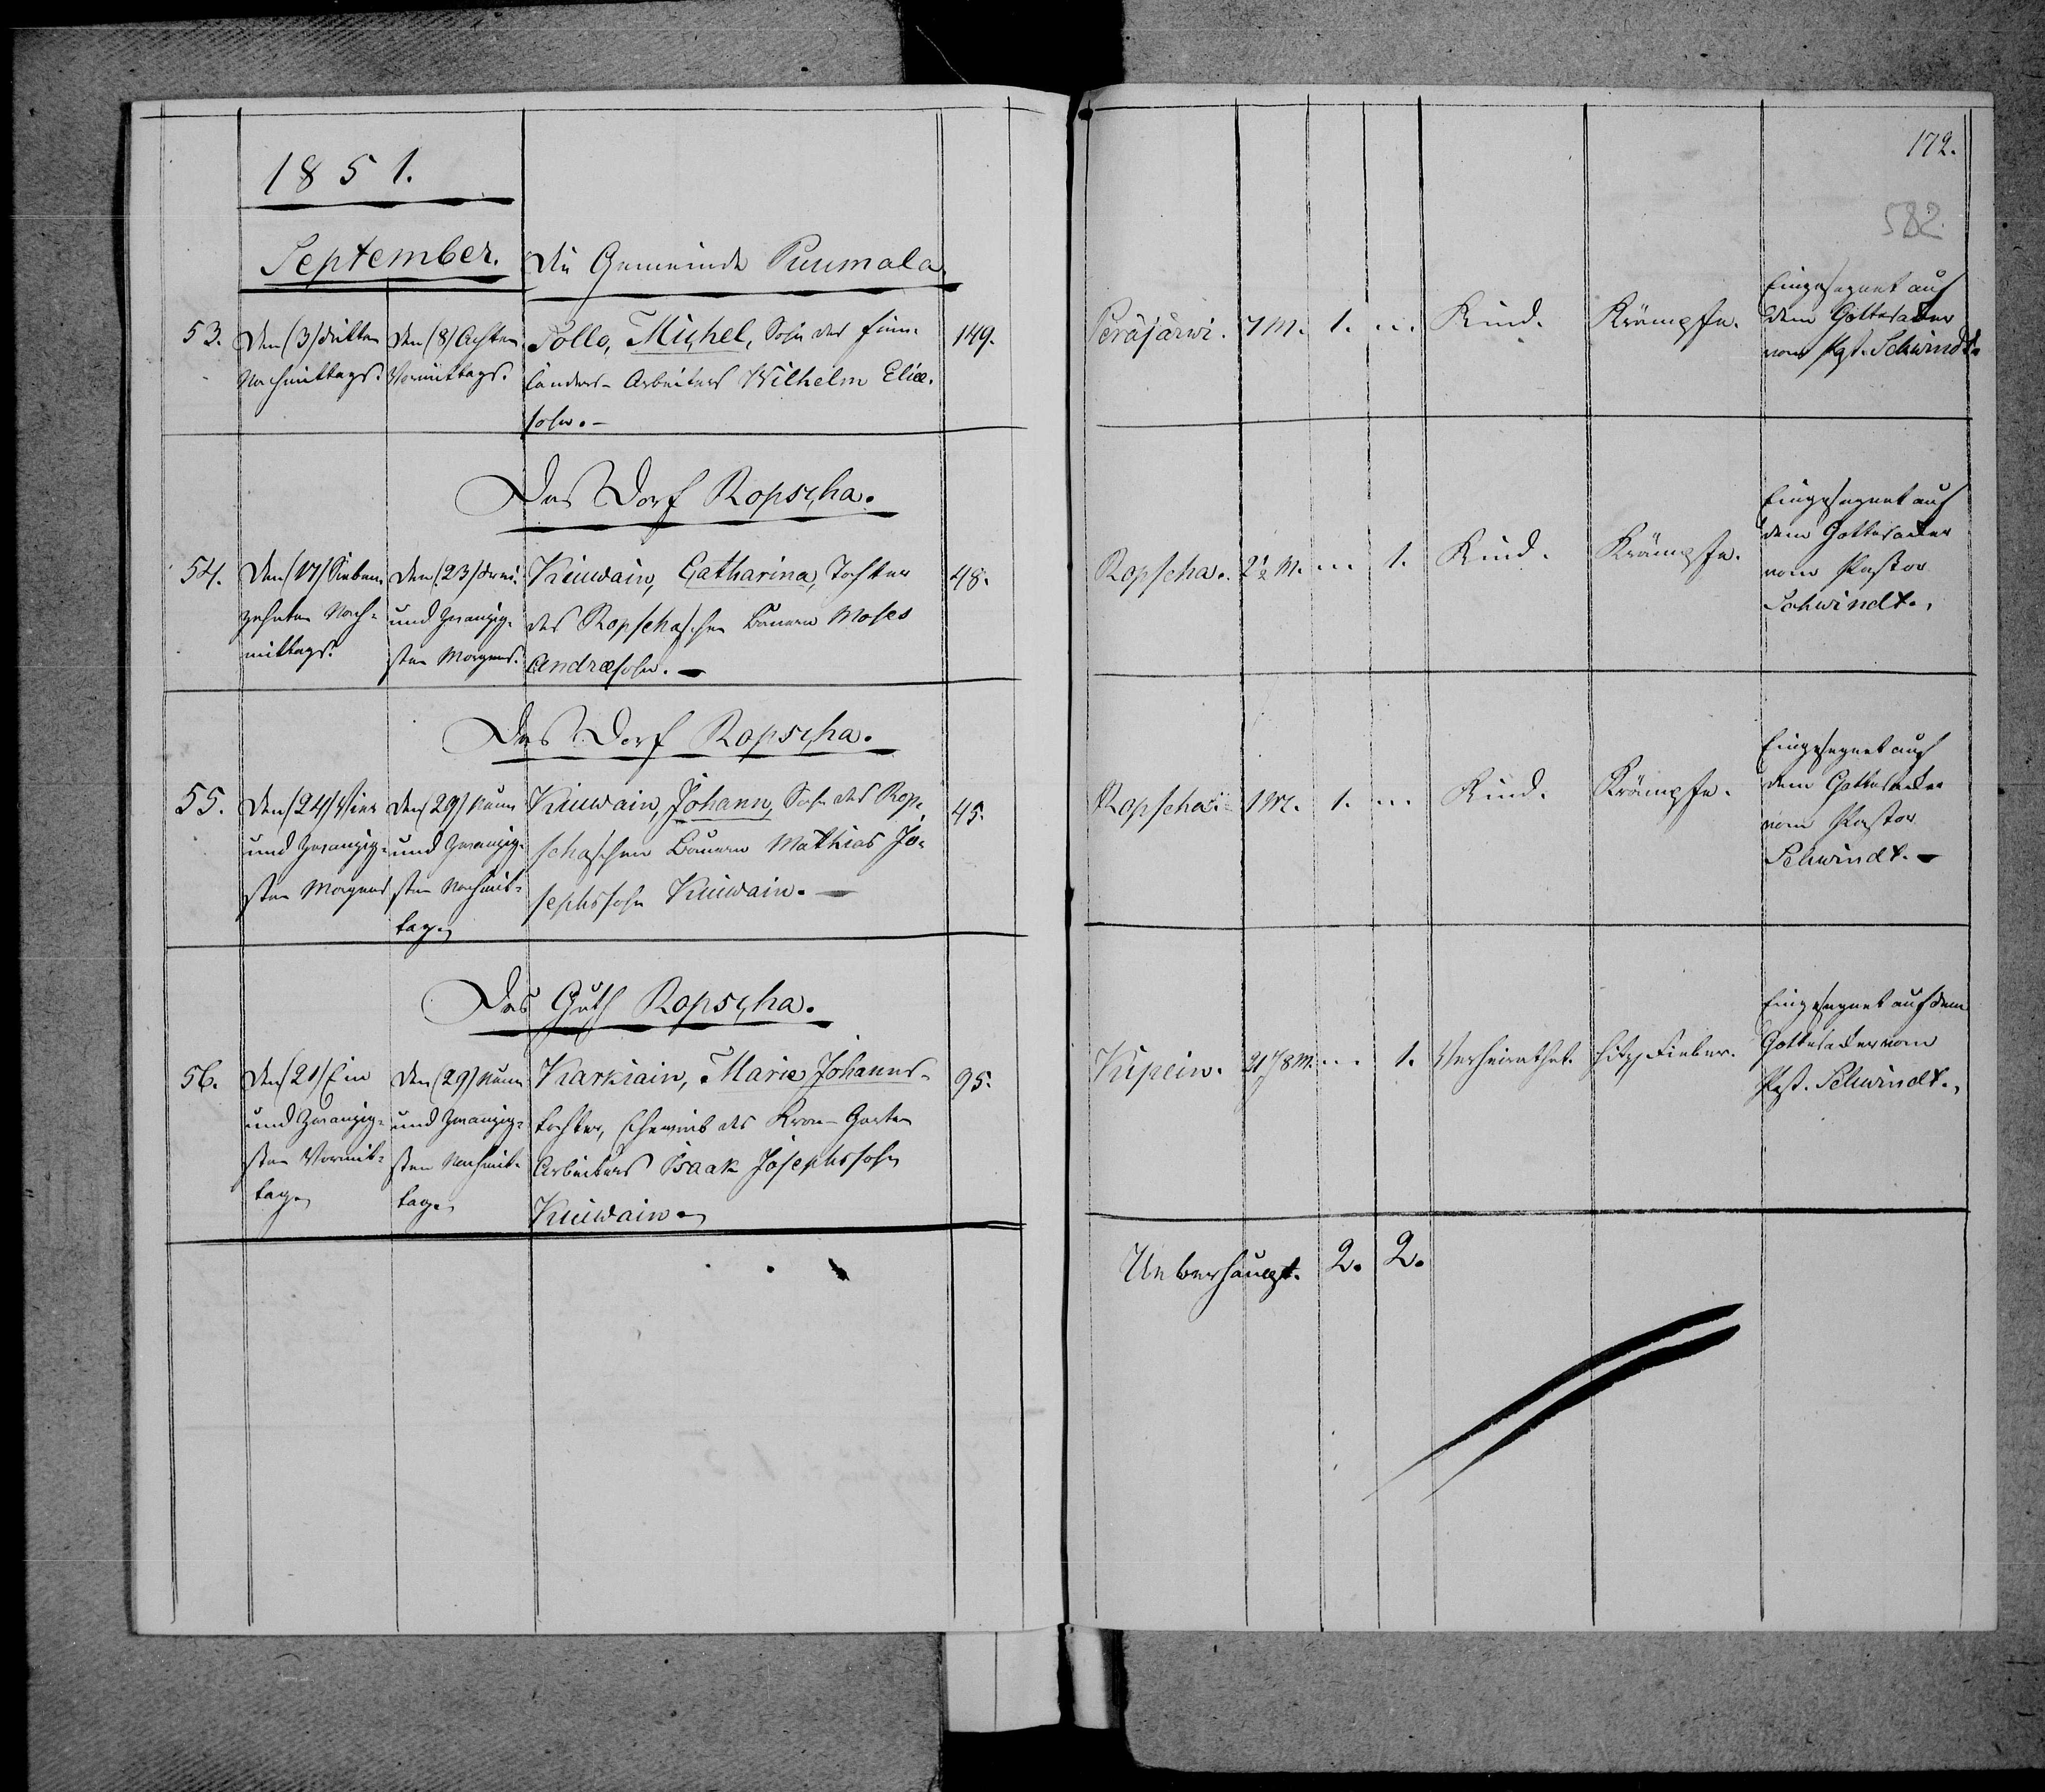 1851.
September.
Die Gemeinde Puumala
53.
Den (3) dritten
Nachmittags.
Den (8) Achten
Vormittags.
Pollo, Michel, Sohn des finn-
länders-Arbeiters Wilhelm Eliæ-
sohn.-
149.
Das Dorf Ropscha.
54.
Den (17) Sieben
zehnten Nach-
mittags.
Den (23) drei
und zwanzig-
sten Morgens.
Kiuwain, Catharina, Tochter
des Ropschaschen Bauern Moses
Andræsohn. -
48.
Das Dorf Ropscha.
55.
Den (24) Vier
und zwanzig-
sten Morgens
Den (29) Neun
und zwanzig-
sten Nachmit-
tags
Kiuwain, Johann, Sohn des Rop-
schaschen Bauern Mathias Jo-
sephssohn Kiuwain. -
45.
Das Guth Ropscha.
56.
Den (21) Ein
und zwanzig-
sten Vormit-
tags
Den (29) Neun
und zwanzig-
sten Nachmit-
tags
Karkiain, Marie Johanns-
tochter, Eheweib des Kron-Garten
Arbeiters Isaak Josephssohn
Kiuwain.
95.
172.
582
Peräjärwi.
7 M.
1.
...
Kind.
Krämpfe.
Eingesegnet auf
dem Gottesacker
vom Pst. Schwindt.
Ropscha.
2½ M.
...
1.
Kind.
Krämpfe.
Eingesegnet auf
dem Gottesacker
vom Pastor
Schwindt.
Ropscha.
1 M.
1.
...
Kind.
Krämpfe.
Eingesegnet auf
dem Gottesacker
vom Pastor
Schwindt. -
Kipein.
...
1.
Verheirathet.
hitz. Fieber.
Eingesegnet auf dem
Gottesacker vom
Past. Schwindt.
Ueberhaupt.
2.
2.